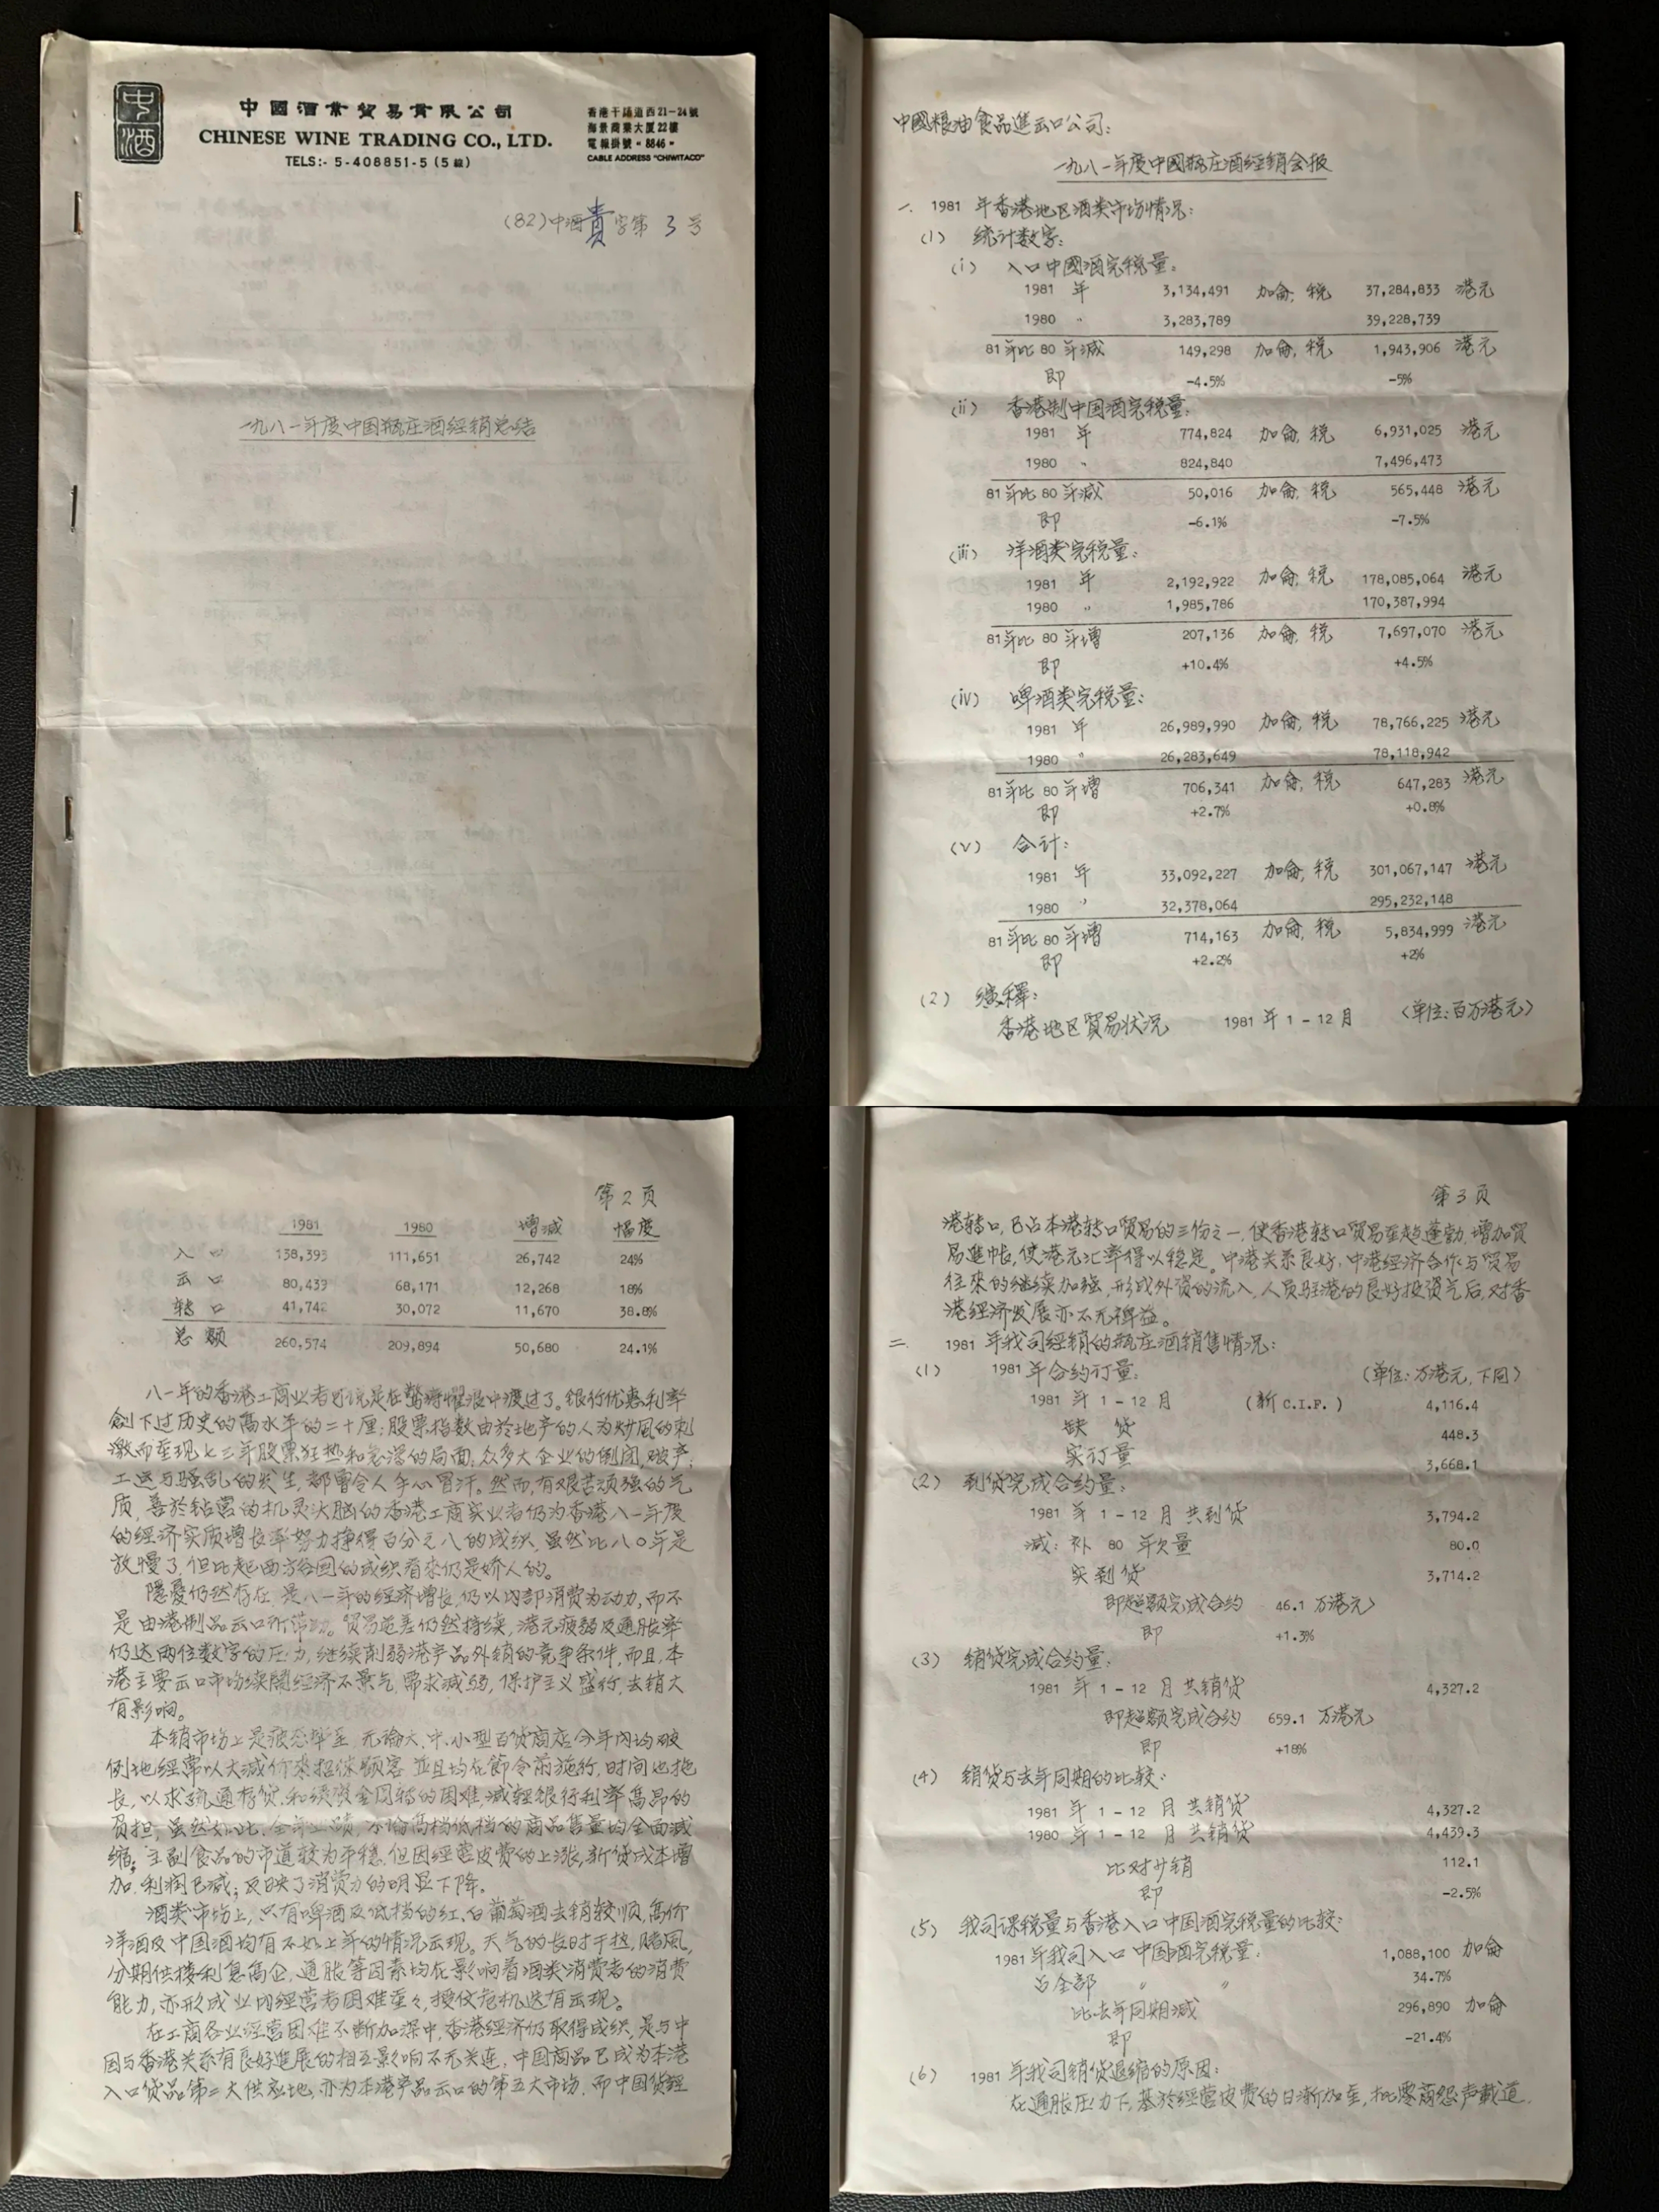 中酒
中國酒業貿易有限公司
CHINESE WINE TRADING CO., LTD.
TELS:- 5-408851-5 (5 線)
香港干諾道西21-24號
海景商業大厦22樓
電報掛號“8846”
CABLE ADDRESS "CHIWITACO"
(82)中酒貴字第 3 号
一九八一年度中国瓶庄酒经销总结
中國粮油食品進出口公司:
一九八一年度中國瓶庄酒经銷会报
一. 1981 年香港地区酒类市场情况:
(1) 统计数字:
(i) 入口中國酒完税量:
1981 年 3,134,491 加侖, 税 37,284,833 港元
1980 〃 3,283,789 39,228,739
81年比 80 年减 149,298 加侖, 税 1,943,906 港元
即 -4.5% -5%
(ii) 香港制中国酒完税量:
1981 年 774,824 加侖, 税 6,931,025 港元
1980 〃 824,840 7,496,473
81年比 80 年减 50,016 加侖, 税 565,448 港元
即 -6.1% -7.5%
(iii) 洋酒类完税量:
1981 年 2,192,922 加侖, 税 178,085,064 港元
1980 〃 1,985,786 170,387,994
81年比 80 年增 207,136 加侖, 税 7,697,070 港元
即 +10.4% +4.5%
(iv) 啤酒类完税量:
1981 年 26,989,990 加侖, 税 78,766,225 港元
1980 〃 26,283,649 78,118,942
81年比 80 年增 706,341 加侖, 税 647,283 港元
即 +2.7% +0.8%
(v) 合计:
1981 年 33,092,227 加侖, 税 301,067,147 港元
1980 〃 32,378,064 295,232,148
81年比 80 年增 714,163 加侖, 税 5,834,999 港元
即 +2.2% +2%
(2) 演釋:
香港地区貿易状况 1981 年 1 - 12 月 (单位:百万港元)
第 2 页
1981 1980 增减 幅度
入口 138,393 111,651 26,742 24%
出口 80,439 68,171 12,268 18%
转口 41,742 30,072 11,670 38.8%
总额 260,574 209,894 50,680 24.1%
八一年的香港工商业者可说是在驚涛惧浪中渡过了。银行优惠利率
创下过历史的高水平的二十厘;股票指数由於地产的人为炒风的刺
激而重现七三年股票狂热和急泻的局面;众多大企业的倒闭,破产;
工运与骚乱的发生,都曾令人手心冒汗。然而,有艰苦顽强的气
质,善於钻营的机灵头脑的香港工商实业者仍为香港八一年度
的经济实质增长率努力挣得百分之八的成织,虽然比八〇年是
放慢了,但比起西方各国的成织看来仍是娇人的。
隐憂仍然存在,是八一年的经济增长,仍以内部消费为动力,而不
是由港制品出口所带动。贸易逆差仍然持续,港元疲弱及通胀率
仍达两位数字的压力,继续削弱港产品外销的竞争条件,而且,本
港主要出口市场续闹经济不景气,需求减弱,保护主义盛行,去销大
有影响。
本销市场上是疲态毕呈,无论大.中.小型百货商店,今年内均破
例地经常以大减价来招徕顾客,並且均在節令前施行,时间也拖
长,以求疏通存货,和缓资金周转的困难,减轻银行利率高昂的
负担;虽然如此,全年业绩,不论高档低档的商品售量均全面减
缩;主副食品的市道较为平稳,但因经营皮费的上涨,新货成本增
加,利润已减;反映了消费力的明显下降。
酒类市场上,只有啤酒及低档的红、白葡萄酒去销较順,高价
洋酒及中国酒均有不如上年的情况出现。天气的长时干热,赌風,
分期供楼利息高企,通胀等因素均在影响着酒类消费者的消费
能力,亦形成业内经营者困难重々,授仗危机迭有出现。
在工商各业经营困难不断加深中,香港经济仍取得成织,是与中
国与香港关系有良好進展的相互影响不无关连,中国商品已成为本港
入口货品第二大供应地,亦为本港产品出口的第五大市场,而中国货经
第 3 页
港转口,已占本港转口贸易的三份之一,使香港转口贸易至趋蓬勃,增加贸
易進帐,使港元汇率得以稳定。中港关系良好,中港经济合作与贸易
往来的继续加强,形成外资的流入,人员驻港的良好投资气后,对香
港经济发展亦不无裨益。
二. 1981 年我司经銷的瓶庄酒销售情况:
(1) 1981 年合约订量: (单位:万港元,下同)
1981 年 1 - 12 月 (新 C.I.F.) 4,116.4
缺 货 448.3
实订量 3,668.1
(2) 到货完成合约量:
1981 年 1 - 12 月 共到货 3,794.2
减: 补 80 年欠量 80.0
实到货 3,714.2
即超额完成合约 46.1 万港元
即 +1.3%
(3) 销货完成合约量:
1981 年 1 - 12 月 共销货 4,327.2
即超额完成合约 659.1 万港元
即 +18%
(4) 销货与去年同期的比较:
1981 年 1 - 12 月 共销货 4,327.2
1980 年 1 - 12 月 共销货 4,439.3
比对少销 112.1
即 -2.5%
(5) 我司课税量与香港入口中国酒完税量的比较:
1981年我司入口中国酒完税量: 1,088,100 加侖
占全部 〃 〃 34.7%
比去年同期减 296,890 加侖
即 -21.4%
(6) 1981 年我司销货退缩的原因:
在通胀压力下,基於经营皮费的日漸加重,批零商怨声载道,